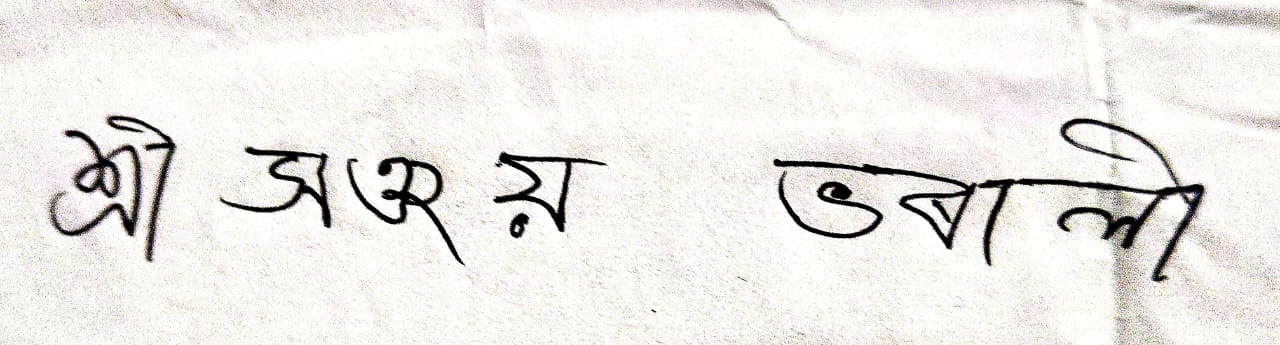 শ্রী অজয় ভবালী